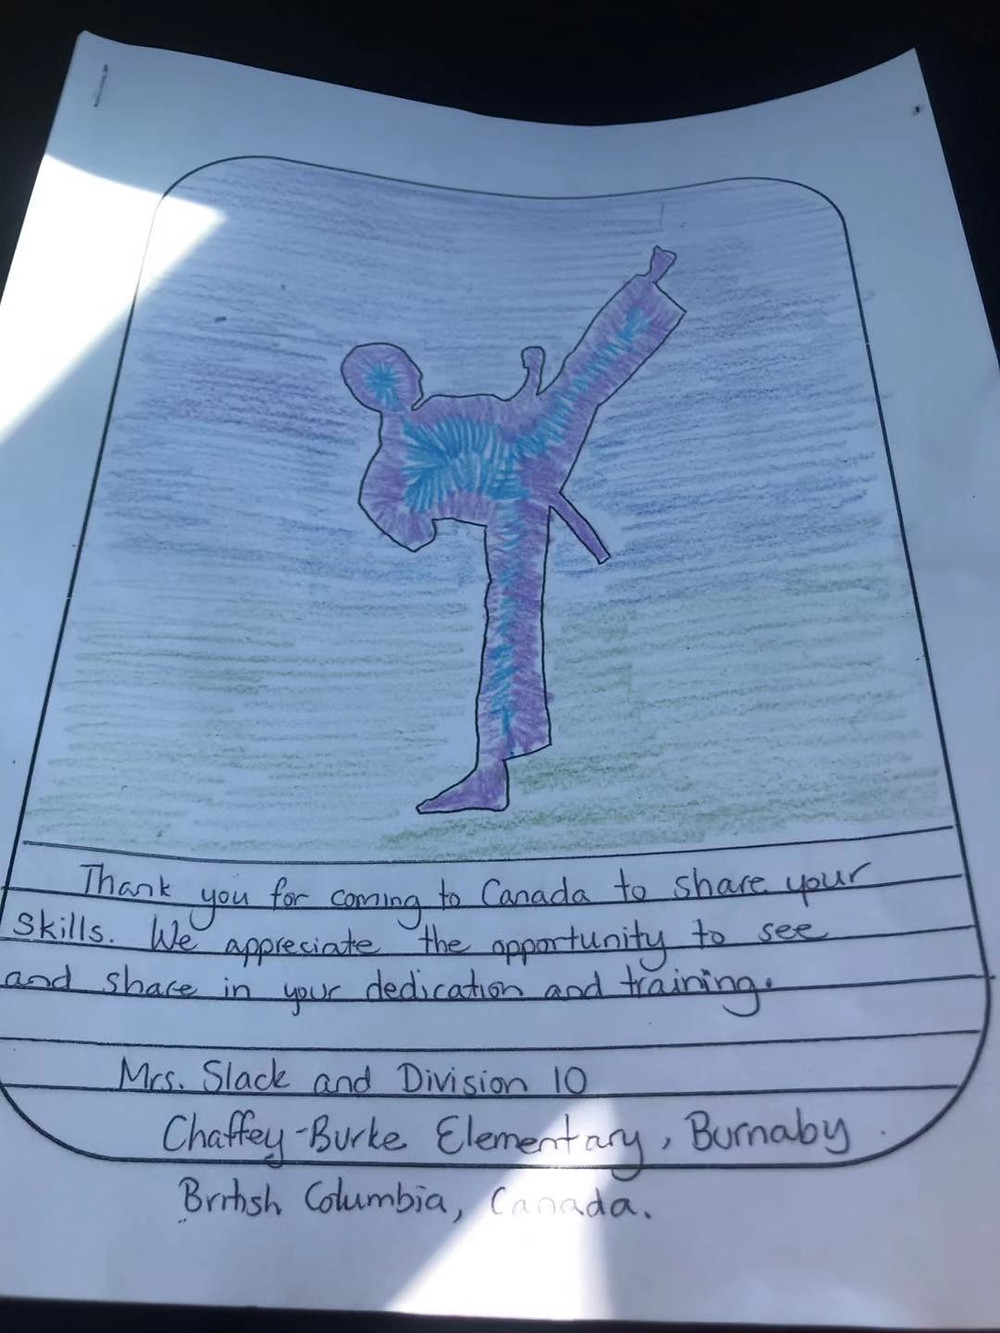 Thank you for coming to Canada to share your
skills. We appreciate the opportunity to see
and share in your dedication and training.
Mrs. Slack and Division 10
Chaffey-Burke Elementary, Burnaby
British Columbia, Canada.